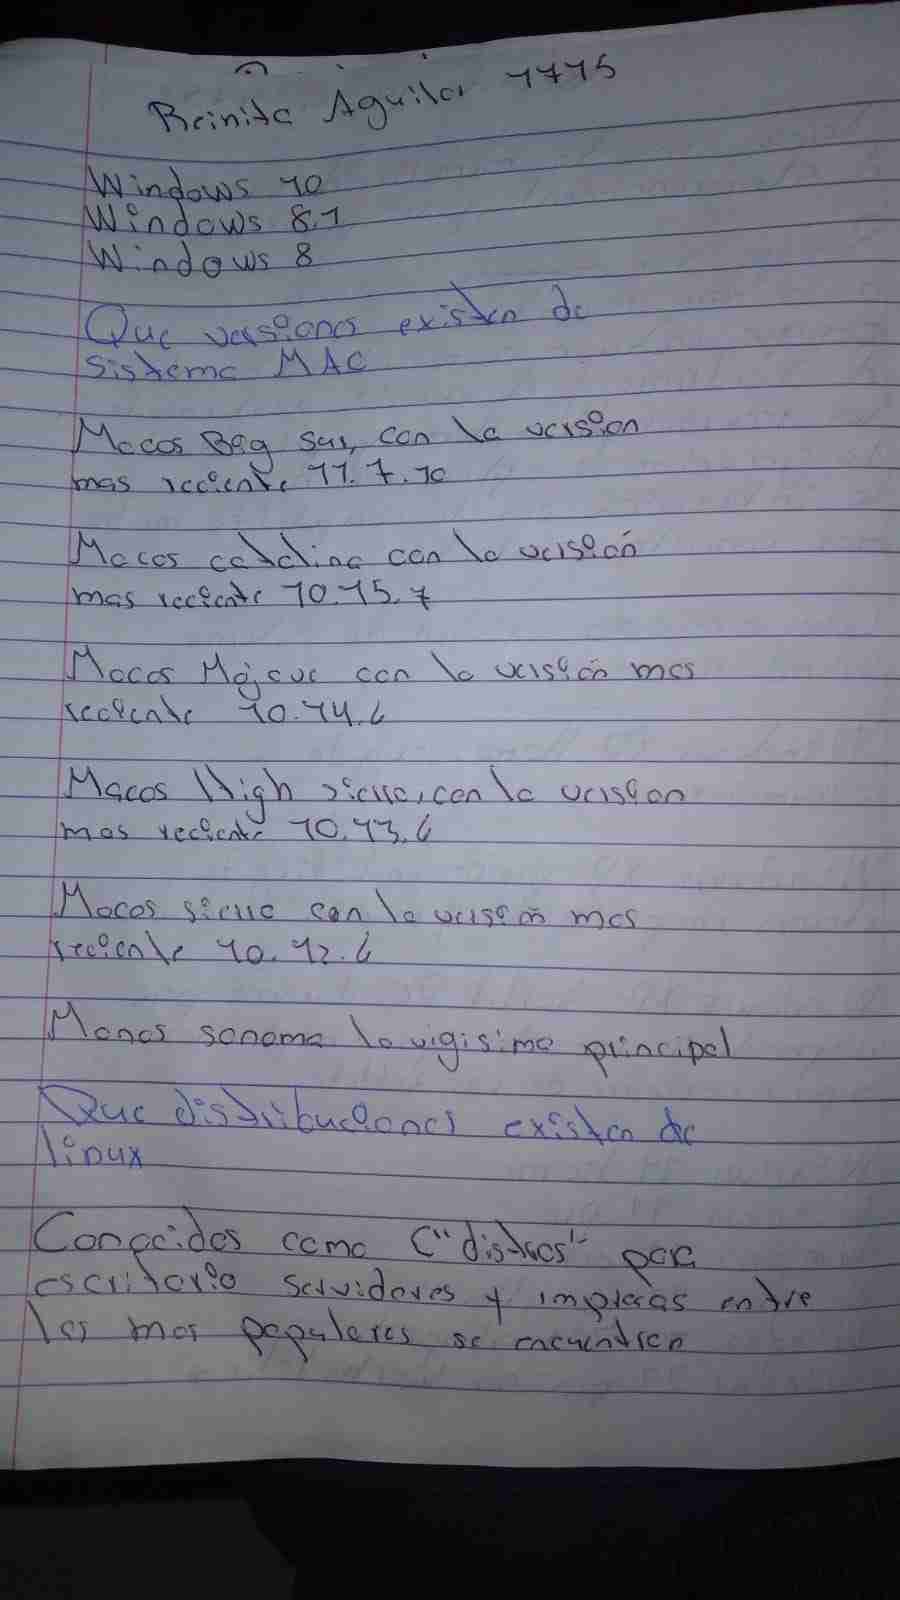 Breinita Aguilar 1775
Windows 10
Windows 8.1
Windows 8
Que versiones existen de
sistema MAC
Macos Big sur, con la version
mas reciente 11.7.10
Macos catalina con la versión
mas reciente 10.15.7
Macos Mojave con la versión mas
reciente 10.14.6
Macos High sierra, con la version
mas reciente 10.13.6
Macos sierra con la versión mas
reciente 10.12.6
Manos sonoma la vigisima principal
Que distribuciones existen de
linux
Conocidas como ("distros" para
escritorio servidores y impresas entre
las mas populares se encuentran